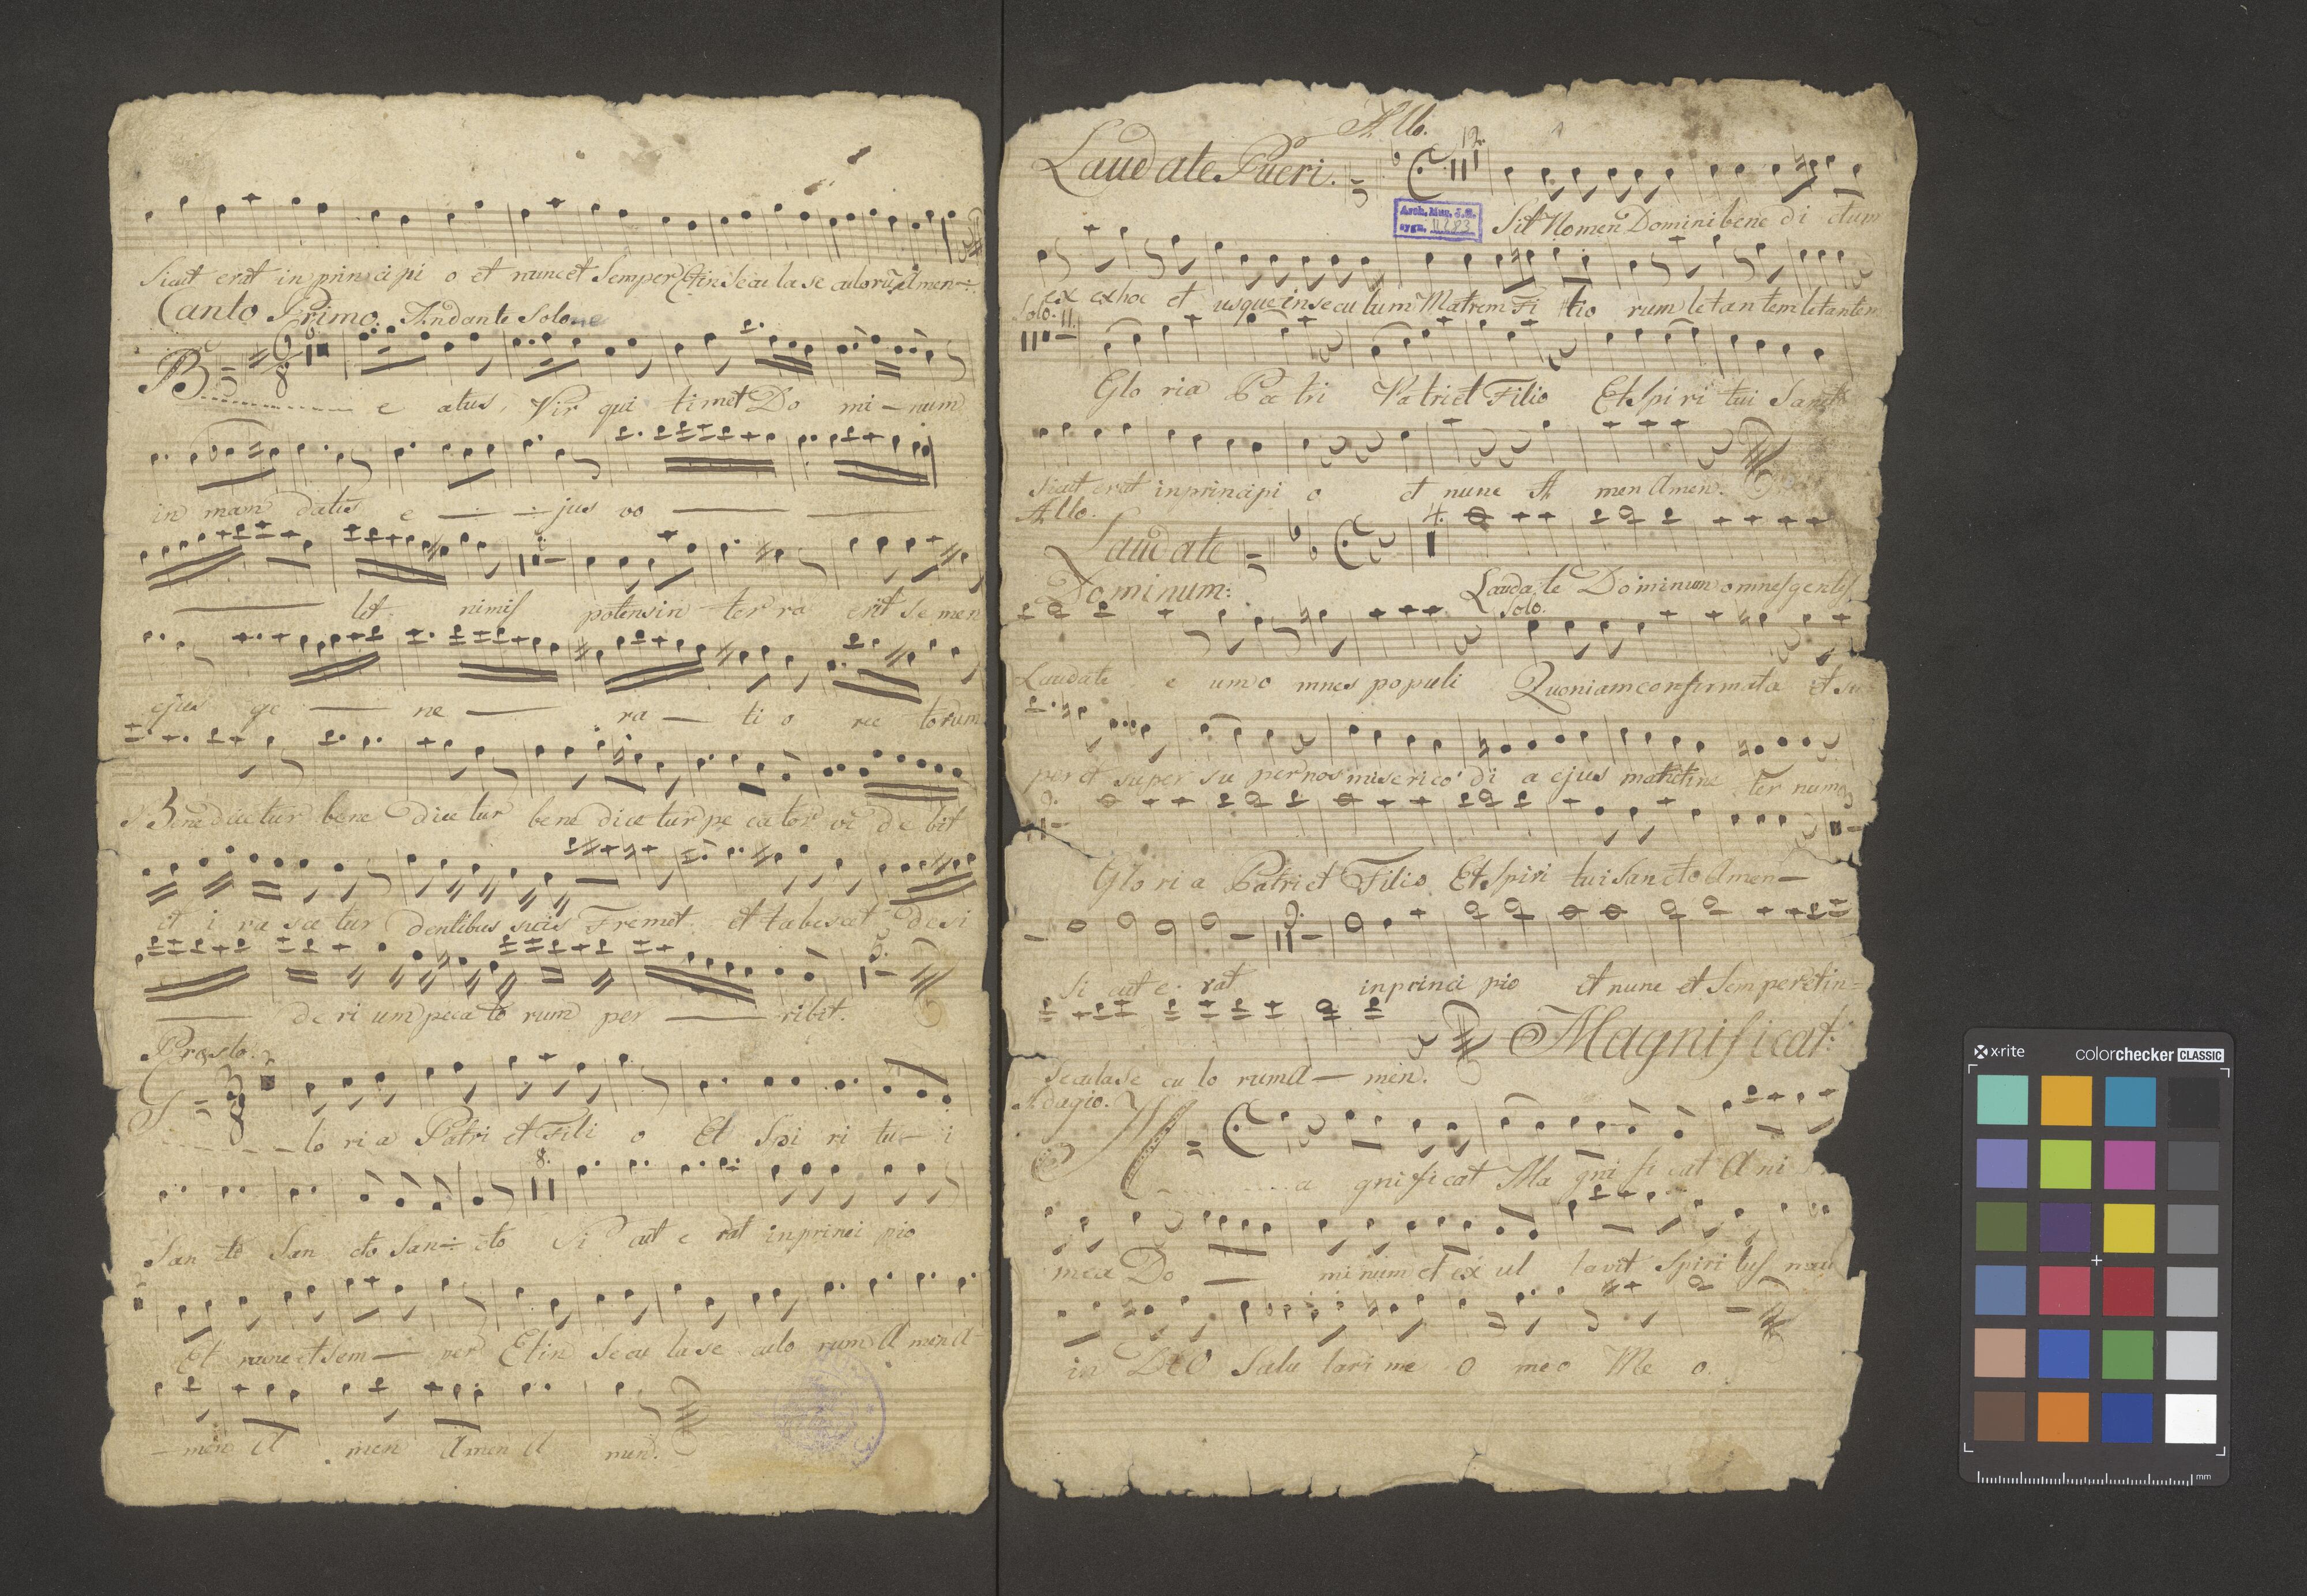 Sicut erat in principi o et nunc et Semper Et in Secu la se culorū Amen
Canto Primo. Andante Solo
6
B e atus Vir qui timet Do mi - num
in man datis e - jus vo
let nimis potens in ter ra erit se men
ejus ge ne ra ti o rec torum
Bene dicetur bene dicetur bene dicetur pe cator vi de bit
et i ra sce tur dentibus suis Fremet et tabescet desi
5.
de ri um peca to rum per ribit.
Presto.
G lo ri a Patri et Fili o Et Spi ri tu - i
8.
San cto San cto San - cto Si cut e rat in princi pio
Et nunc et sem - per Et in Secu la se culo rum A men A
men A men A men A men.
Allo.
12.
Laudate Pueri.
Arch. Muz. J.G.
sygn.
Sit Nomen Domini bene di ctum
ex ex hoc et usque in secu lum Matrem Fi lio rum letan tem letantem
Solo. 11.
Glo ria Pa tri Patri et Filio Et Spi ri tui Sancto
sicut erat in principi o et nunc A men Amen.
Allo.
4.
Laudate
Dominum:
Lauda te Dominum omnes gentes
Solo.
Laudate e um o mnes populi Quoniam confirmata et su
per et super su per nos misericor di a ejus
ter num
9.
Glo ri a Patri et Filio Et Spiri tui San cto Amen
9.
Si cut e rat in princi pio et nunc et Semper et in =
Magnificat:
Secula se cu lo rum A - men.
Adagio.
M a gnificat Ma gni fi cat A ni
mea Do minum et ex ul tavit Spiri tus meus
in DEO Salu tari me o meo Me o.
x·rite
colorchecker CLASSIC
mm